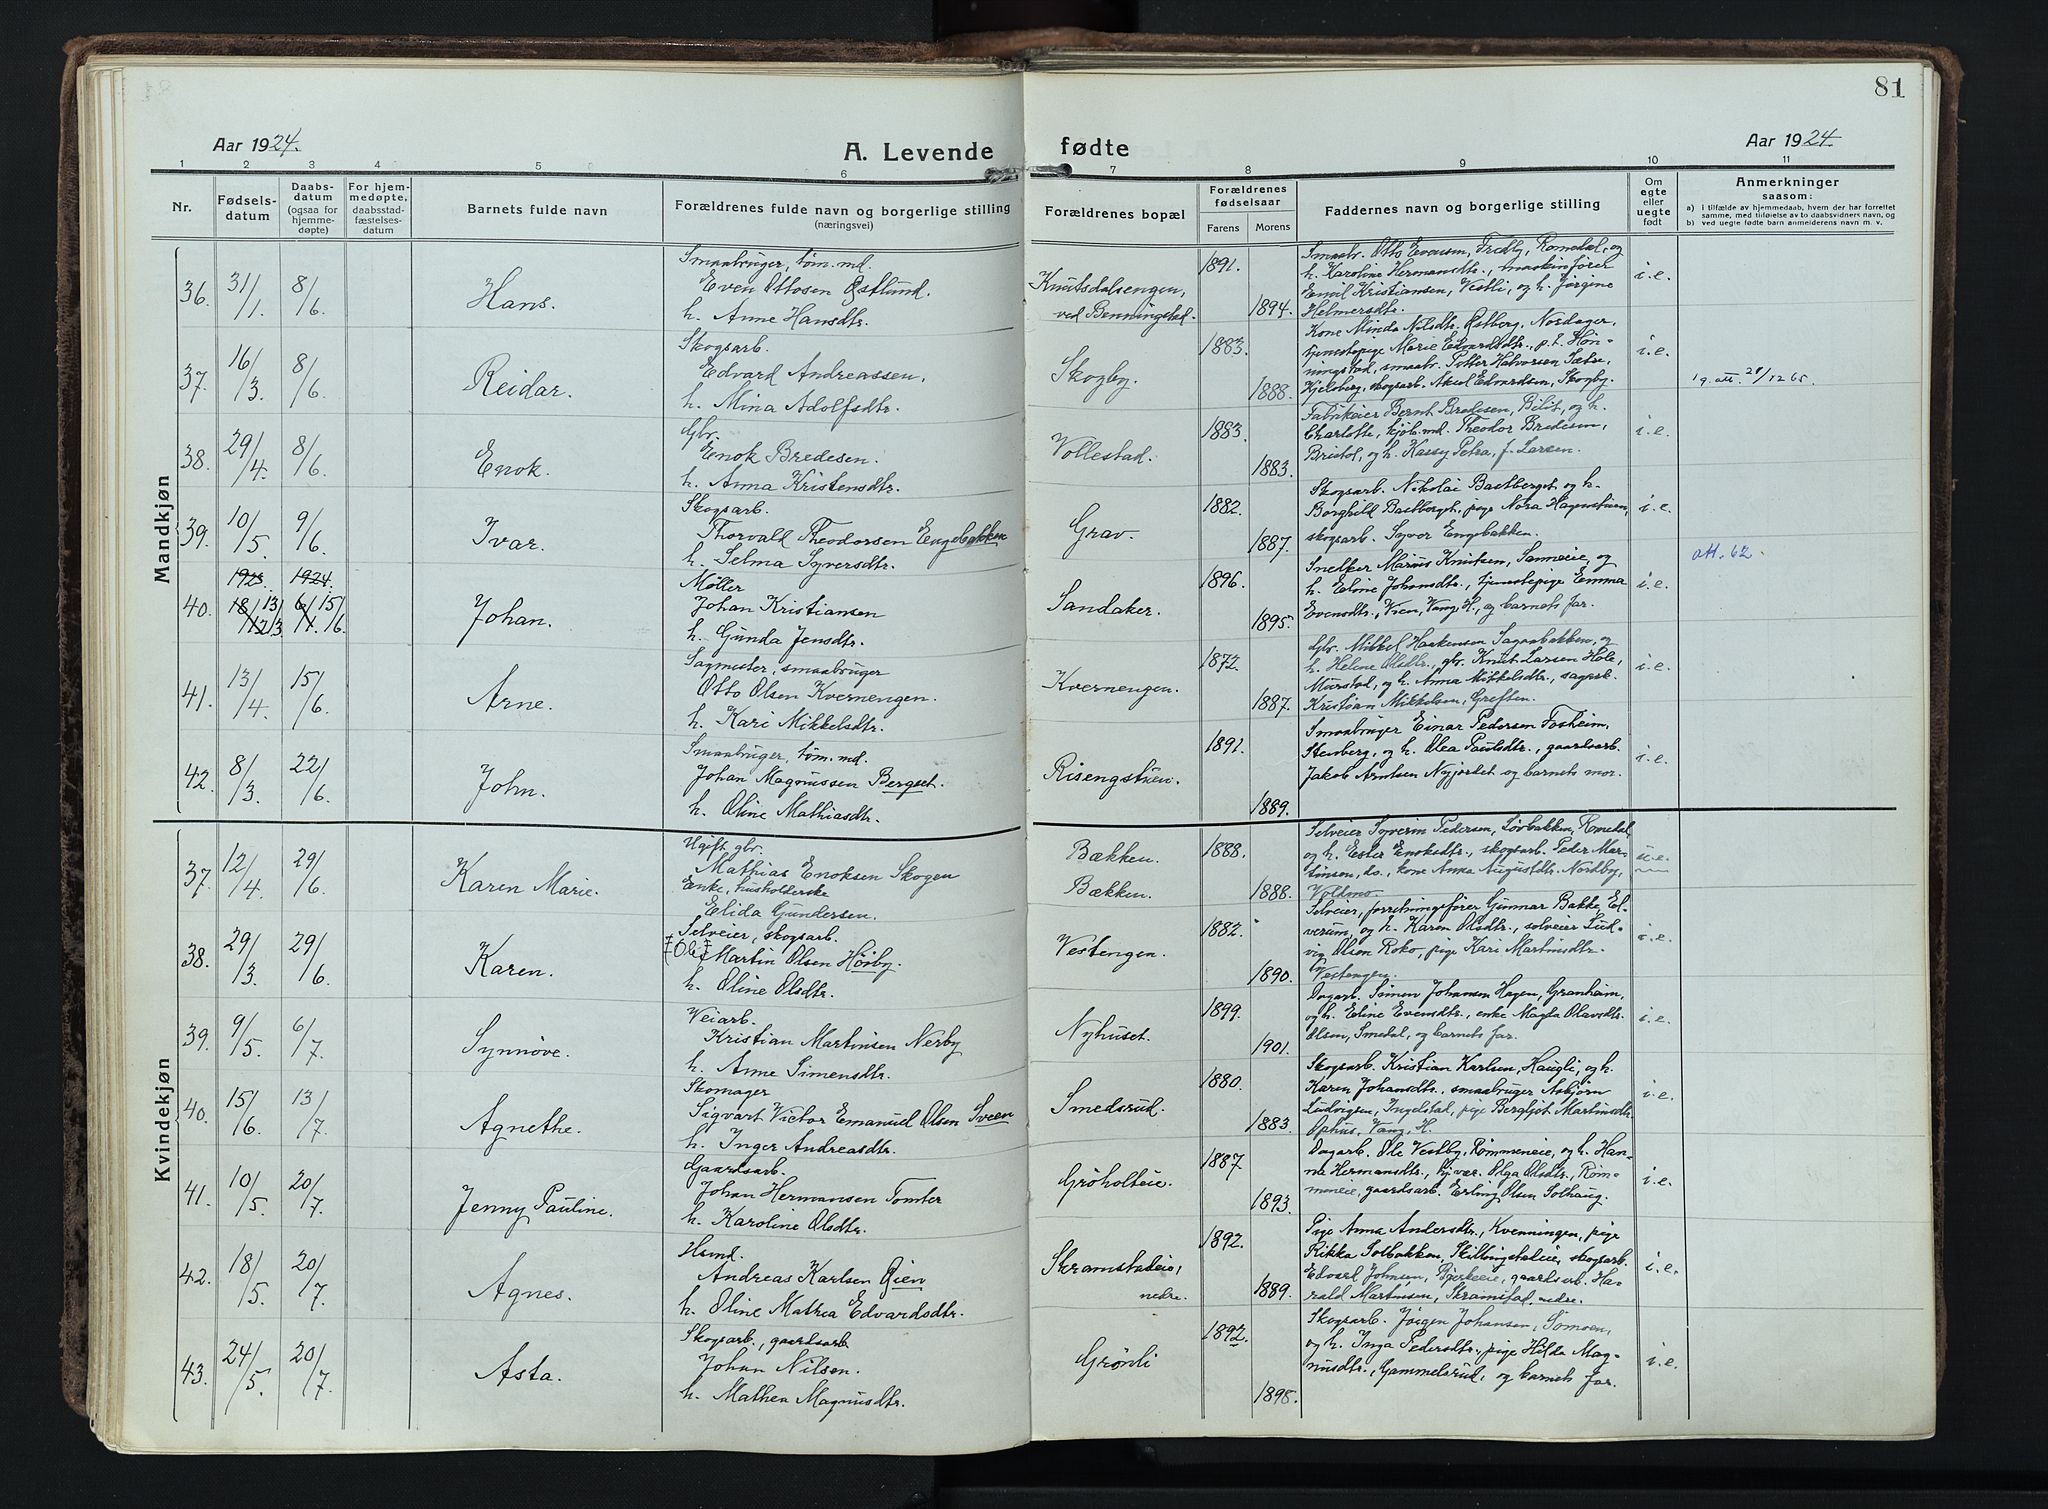 81
Aar 1924.
A. Levende
fødte
Aar 1924.
1 2 3 4 5 6 7 8 9 10 11
Nr.
Fødsels-
datum
Daabs-
datum
(ogsaa for
hjemme-
døpte)
For hjem-
medøpte,
daabsstad-
fæstelses-
datum
Barnets fulde navn
Forældrenes fulde navn og borgerlige stilling
(næringsvei)
Forældrenes bopæl
Forældrenes
fødselsaar
Farens
Morens
Faddernes navn og borgerlige stilling
Om
egte
eller
uegte
født
Anmerkninger
saasom:
a) i tilfælde av hjemmedaab, hvem der har forrettet
samme, med tilføielse av to daabsvidners navn, og
b) ved uegte fødte barn anmelderens navn m. v.
Mandkjøn
36. 31/1. 8/6 Hans.
Smaabruger, tøm. md.
Even Ottosen Østlund.
h. Anne Hansdtr.
Knutsdalsengen,
ved Benningstad.
1891.
1894.
Smaabr. Otto Evensen, Fredby, Romedal, og
h. Karoline Hermansdtr., maskinfører
Emil Kristiansen, Vestli, og h. Jørgine
Helmersdtr.
i.e.
37. 16/3. 8/6 Reidar.
Skogsarb.
Edvard Andreassen.
h. Mina Adolfsdtr.
Skogby.
1883.
1888.
Kone Minda Nilsdtr. Østberg, Nordager,
tjenestepige Marie Edvardsdtr., p.t. Hon-
ningstad, smaabr. Petter Halvorsen Sætse,
Kjelsberg, skogsarb. Aksel Edvardsen, Skogby.
i.e.
19. att. 28/12 65.
38. 29/4. 8/6 Enok.
Gbr.
Enok Bredesen.
h. Anna Kristensdtr.
Vollestad.
1883.
1883.
Fabrikeier Bernt Bredesen, Bilit, og h.
Charlotte, kjøbmd. Theodor Bredesen,
Bristol, og h. Kassy Petra, f. Larsen.
i.e.
39. 10/5. 9/6 Ivar.
Skogsarb.
Thorvald Theodorsen Engebakken
h. Selma Syversdtr.
Grav.
1882.
1887.
Skogsarb. Nikolai Bastberget og h.
Borghild Bastberget, pige Nora Hagenstuen,
skogsarb. Syver Engebakken.
i.e.
att. 62.
1923. 1924.
40. 18/12 13/3 6/1. 15/6 Johan.
Møller
Johan Kristiansen
h. Gunda Jensdtr.
Sandaker.
1896.
1895.
Snekker Marius Knutsen, Sanneeie, og
h. Eline Johansdtr., tjenestepige Emma
Evensdtr., Vien, Vang, H., og barnets far.
i.e.
41. 13/4. 15/6 Arne.
Sagmester, smaabruger
Otto Olsen Kvernengen.
h. Kari Mikkelsdtr.
Kvernengen.
1872.
1887.
Gbr. Mikkel Haakensen Sagaabakken, og
h. Helene Olsdtr., gbr. Knut Larsen Hole,
Murstad, og h. Anna Mikkelsdtr., sagarb.
Kristian Mikkelsen, Greften.
i.e.
42. 8/3. 22/6 John.
Smaabruger, tøm. md.
Johan Magnussen Bergset.
h. Oline Mathiasdtr.
Risengstuen.
1891.
1889.
Smaabruger Einar Pedersen Fosheim,
Stenberg, og h. Olea Paulsdtr., gaardsarb.
Jakob Arntsen Nyjordet og barnets mor.
i.e.
Kvindekjøn
37. 12/4. 29/6 Karen Marie.
Ugift gbr.
Mathias Enoksen Skogen
Enke, husholderske
Elida Gundersen.
Bækken.
Bækken.
1888.
1888.
Selveier Syverin Pedersen, Løvbakken, Romedal,
og h. Ester Enoksdtr., skogsarb. Peder Mar-
tinsen, ds., kone Anna Augustdtr. Nordby,
Voldmo.
u.e.
38. 29/3. 29/6 Karen.
Selveier, skogsarb.
(Ole) Martin Olsen Hørby.
h. Oline Olsdtr.
Vestengen.
1882.
1890.
Selveier, forretningsfører Gunnar Bakke, El-
verum, og h. Karen Olsdtr., selveier Lud-
vig Olsen Roko, pige Kari Martinusdtr.
Vestengen.
i.e.
39. 9/5. 6/7 Synnøve.
Veiarb.
Kristian Martinsen Nerby
h. Anne Simensdtr.
Nyhuset.
1899.
1901.
Dagarb. Simen Johansen Hagen, Granheim,
og h. Eline Evensdtr., enke Magda Olavsdtr.
Olsen, Smedal, og barnets far.
i.e.
40. 15/6. 13/7 Agnethe.
Skomager
Sigvart Victor Emanuel Olsen Sveen
h. Inger Andreasdtr.
Smedsrud.
1880.
1883.
Skogsarb. Kristian Karlsen, Haugli, og h.
Karen Johansdtr., smaabruger Asbjørn
Ludvigsen, Ingelstad, pige Bergljot Martinsdtr.
Ophus, Vang, H.
i.e.
41. 10/5. 20/7. Jenny Pauline.
Gaardsarb.
Johan Hermansen Tomter
h. Karoline Olsdtr.
Grøholteie.
1887.
1893.
Dagarb. Ole Vestby, Rømmeneie, og h. Han-
na Hermansdtr., tj. vær. Olga Olsdtr., Røm-
meneie, gaardsarb. Erling Olsen Solhaug.
i.e.
42. 18/5. 20/7. Agnes.
Husmd.
Andreas Karlsen Gjen
h. Oline Mathea Edvardsdtr.
Skramstadeie,
nedre.
1892.
1889.
Pige Anna Andersdtr., Kvenningen, pige
Rikka Solbakken, Skillingstadeie, skogsarb.
Edvard Johnsen, Bjerkeeie, gaardsarb. Ha-
rald Martinsen, Skramstad, nedre.
i.e.
43. 24/5. 20/7. Asta.
Skogsarb., gaardsarb.
Johan Nilsen.
h. Mathea Magnusdtr.
Grønli
1892.
1898.
Skogsarb. Jørgen Johansen, Sømoen,
og h. Inga Pedersdtr., pige Hilda Mag-
nusdtr., Gammelsrud, og barnets far.
i.e.